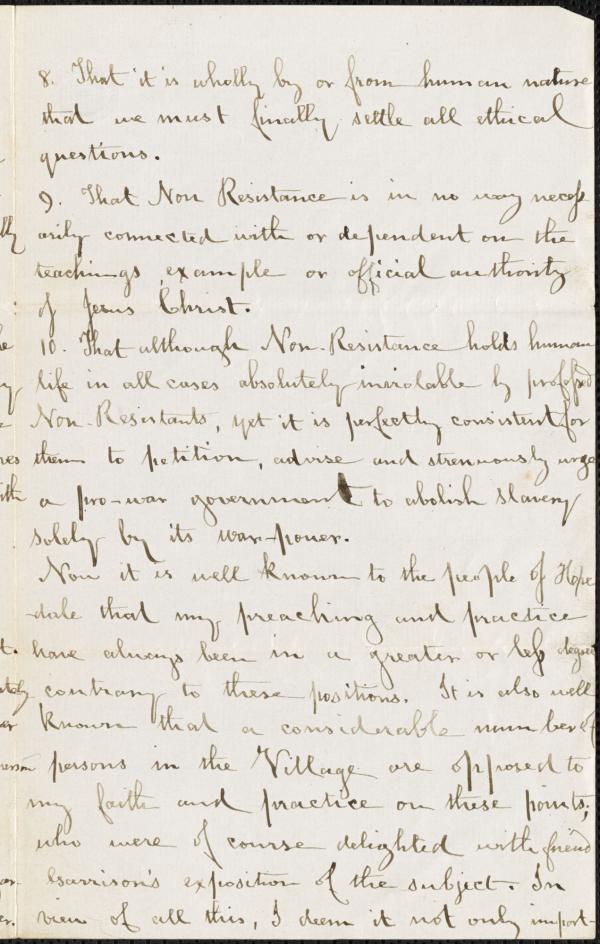 8. That it is wholly by or from human nature
that we must finally settle all ethical
questions.
9. That Non Resistance is in no way necess
arily connected with or dependent on the
teachings, example or official authority
of Jesus Christ.
10. That although Non-Resistance holds human
life in all cases absolutely inviolable by professed
Non-Resistants, yet it is perfectly consistent for
them to petition, advise and strenuously urge
a pro-war government to abolish slavery
solely by its war-power.
Now it is well known to the people of Hope
-dale that my preaching and practice
have always been in a greater or less degree
contrary to these positions. It is also well
known that a considerable number of
persons in the Village are opposed to
my faith and practice on these points;
who were of course delighted with friend
Garrison's exposition of the subject. In
view of all this, I deem it not only import-